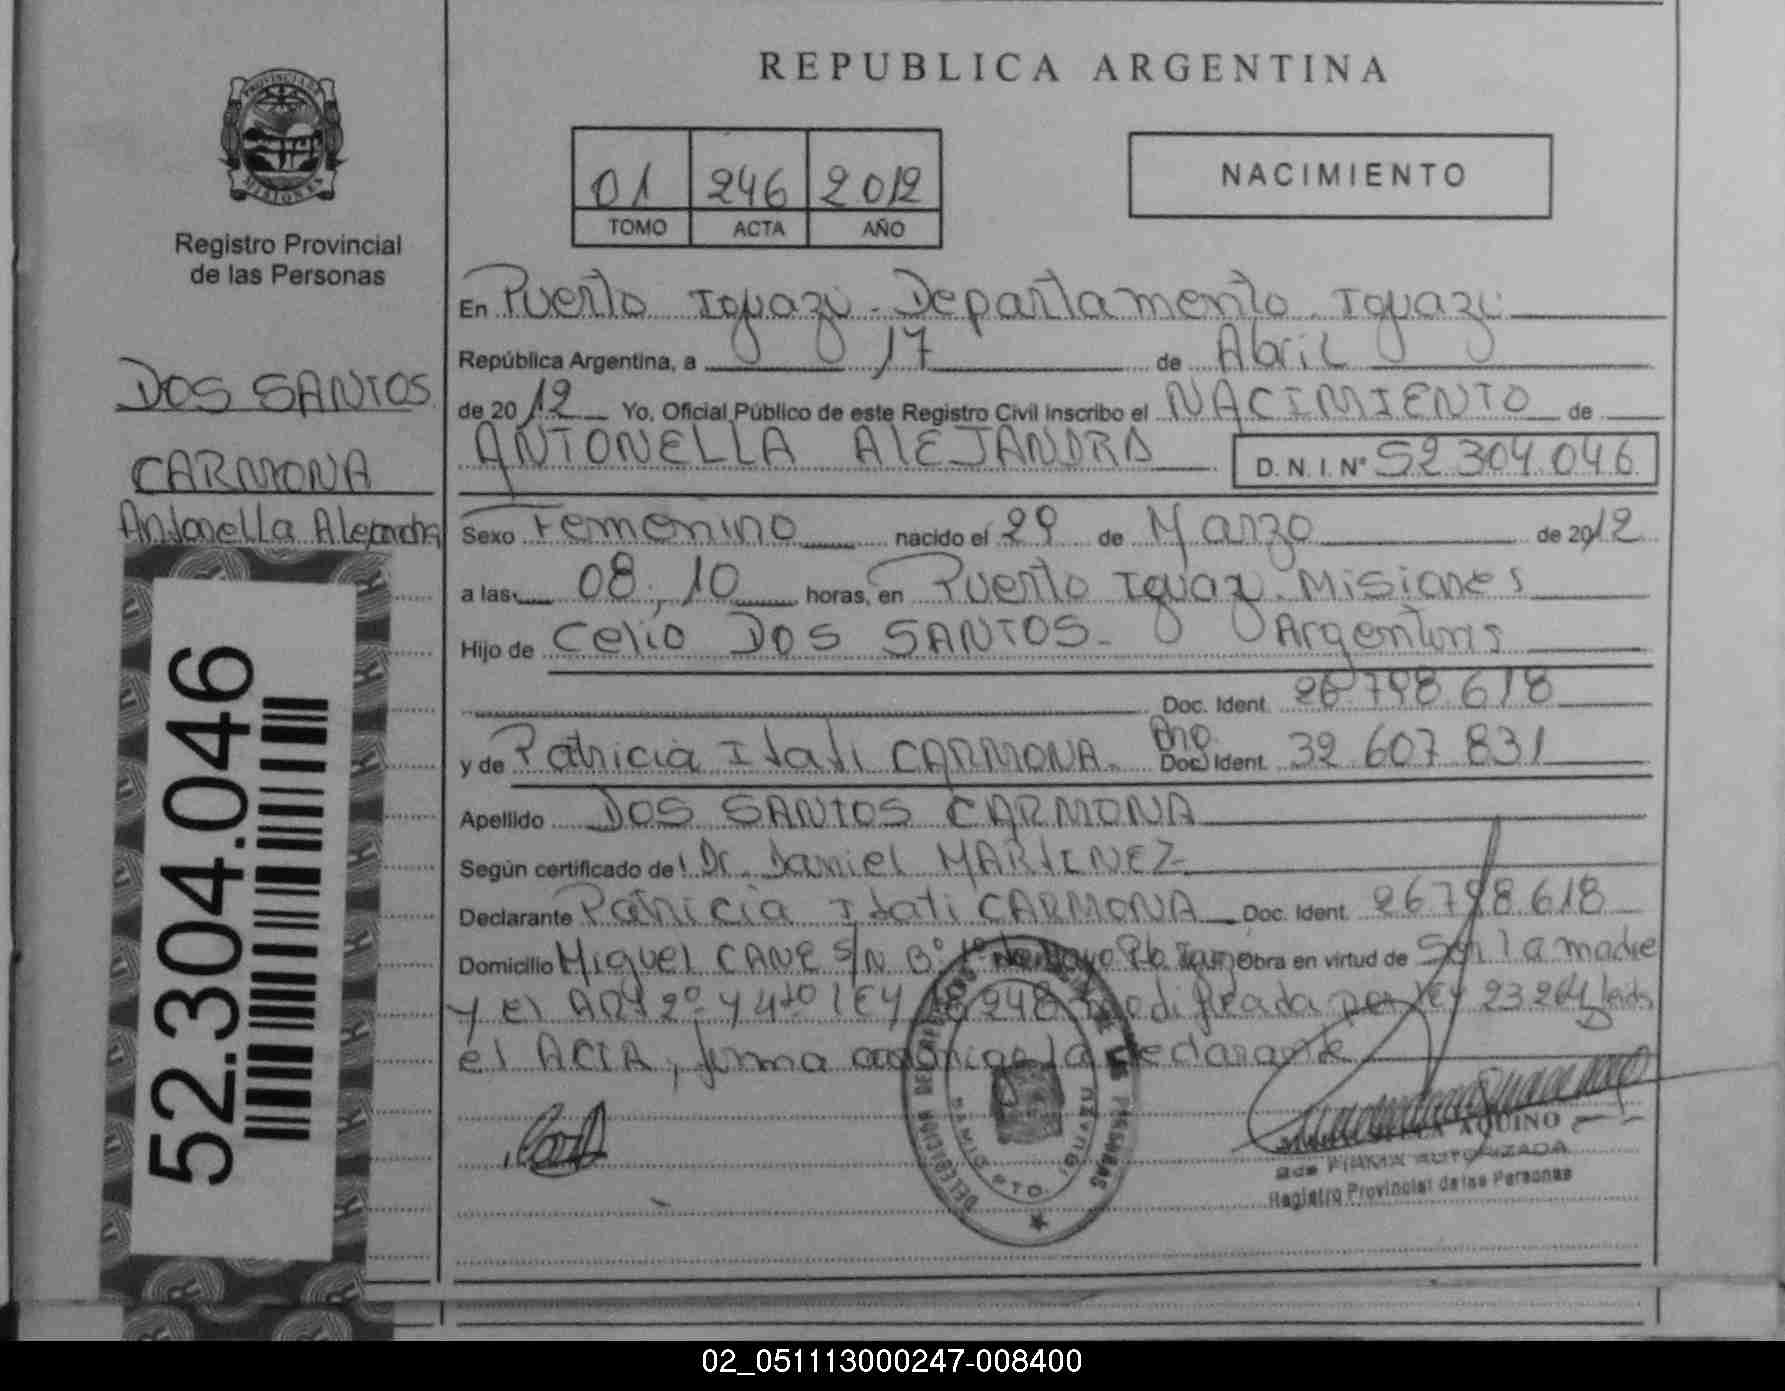 PROVINCIA DE
MISIONES
Registro Provincial
de las Personas
DOS SANTOS
CARMONA
Antonella Alejandra
52.304.046
REPUBLICA ARGENTINA
01 246 2012
TOMO ACTA AÑO
NACIMIENTO
En Puerto Iguazú - Departamento Iguazú
República Argentina, a 17 de Abril
de 2012 Yo, Oficial Público de este Registro Civil inscribo el NACIMIENTO de
ANTONELLA ALEJANDRA D. N. I. N° 52 304 046
Sexo Femenino nacido el 29 de Marzo de 2012
a las 08:10 horas, en Puerto Iguazu. Misiones
Hijo de Celio DOS SANTOS - Argentinos
Doc. Ident. 26.798.618
y de Patricia Itati CARMONA. Doc. Ident. 32 607 831
Apellido DOS SANTOS CARMONA
Según certificado de: Dr. Daniel MARTINEZ -
Declarante Patricia Itati CARMONA Doc. Ident. 26798.618
Domicilio Miguel CANE S/N B° 1° de Mayo Obra en virtud de Ser la madre
y el ART 2° y 4to LEY 18248 modificada por LEY 23264 leida
el ACTA, firma conmigo la declarante
DELEGACION DEL REGISTRO PROVINCIAL DE LAS PERSONAS
PTO. IGUAZU
AQUINO
FIRMA AUTORIZADA
Registro Provincial de las Personas
02_051113000247-008400